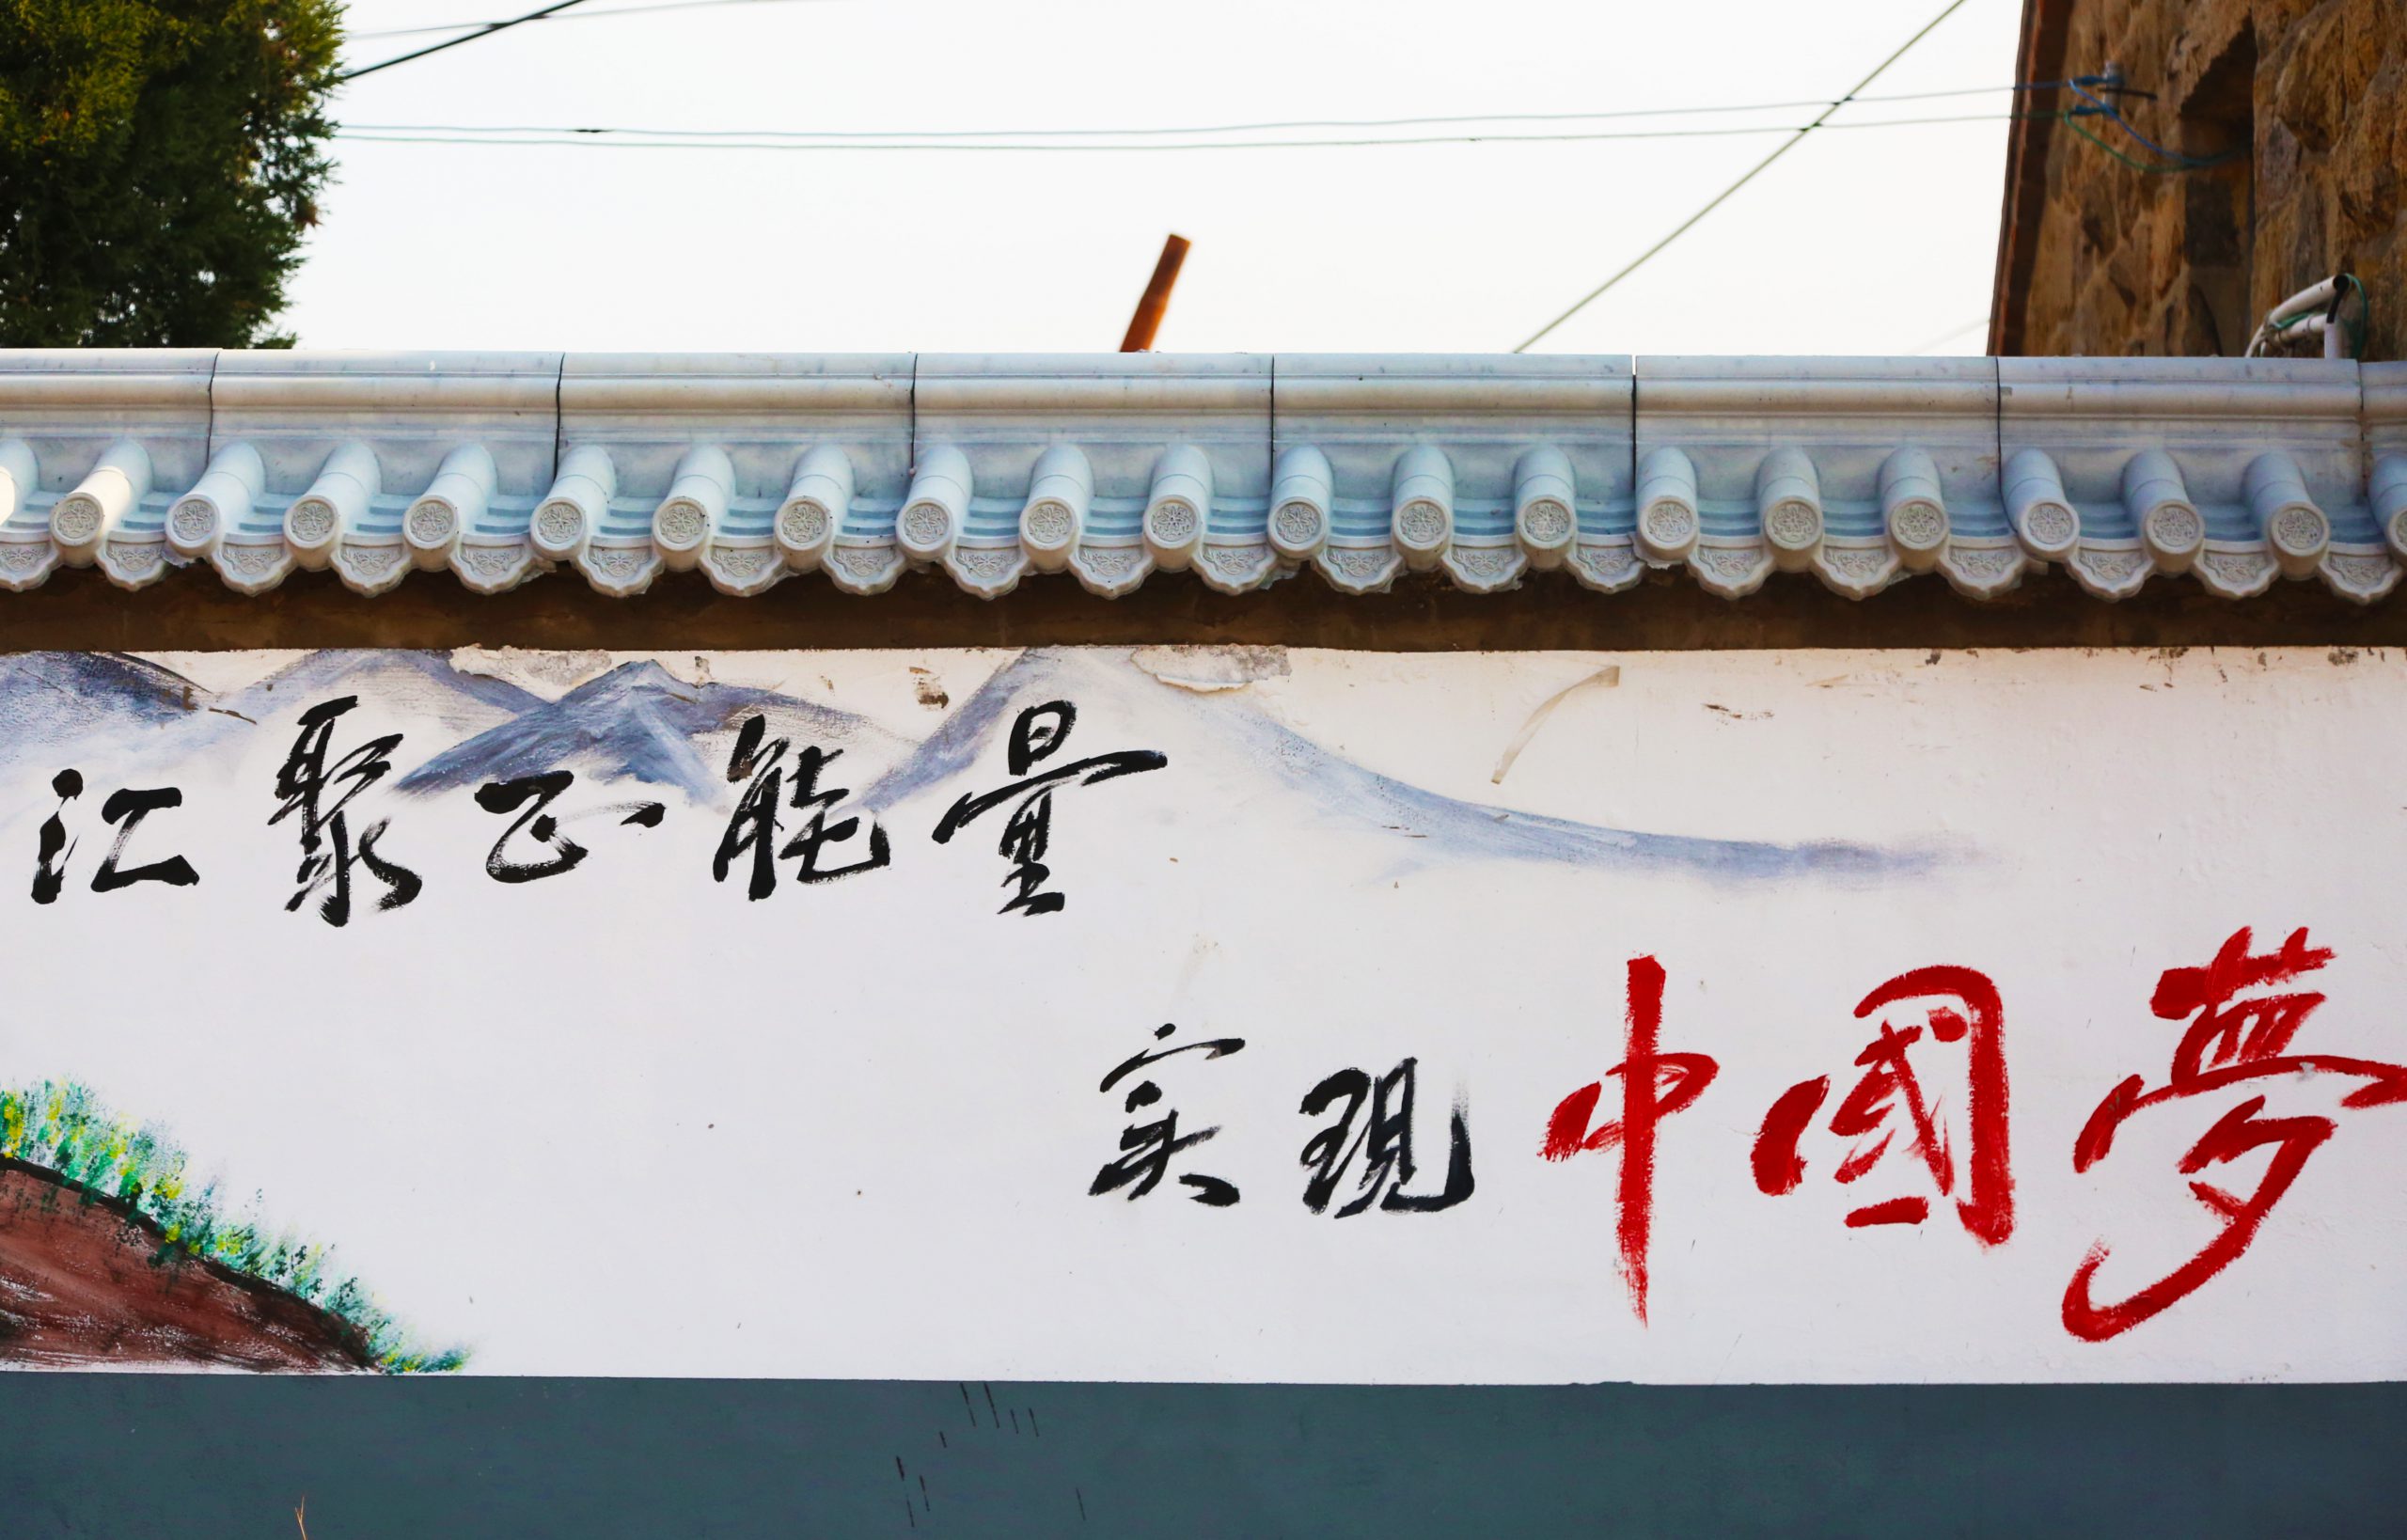 汇聚正能量
实现中國夢